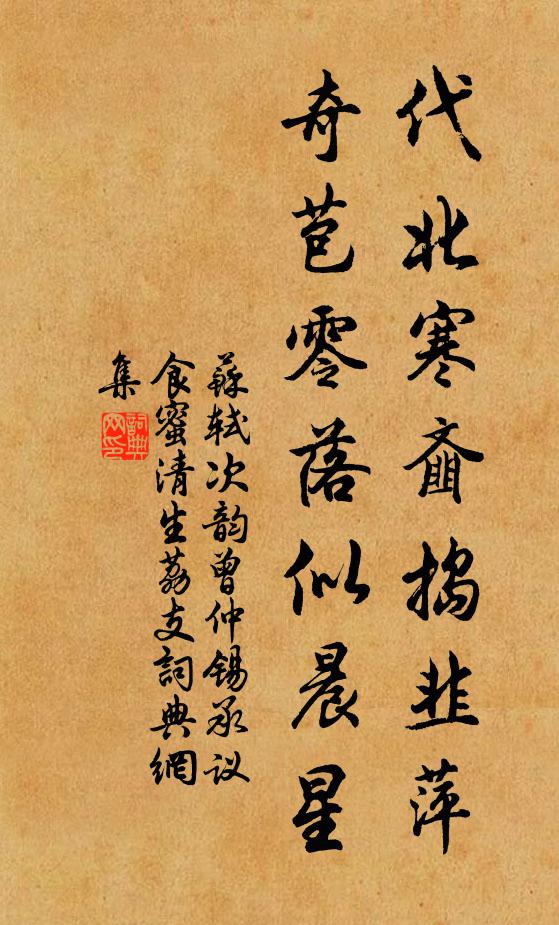 代北寒齑捣韭萍
奇苞零落似晨星
蘇軾次韵曾仲锡承议
食蜜清生荔支詞典網
集
詞典
网印